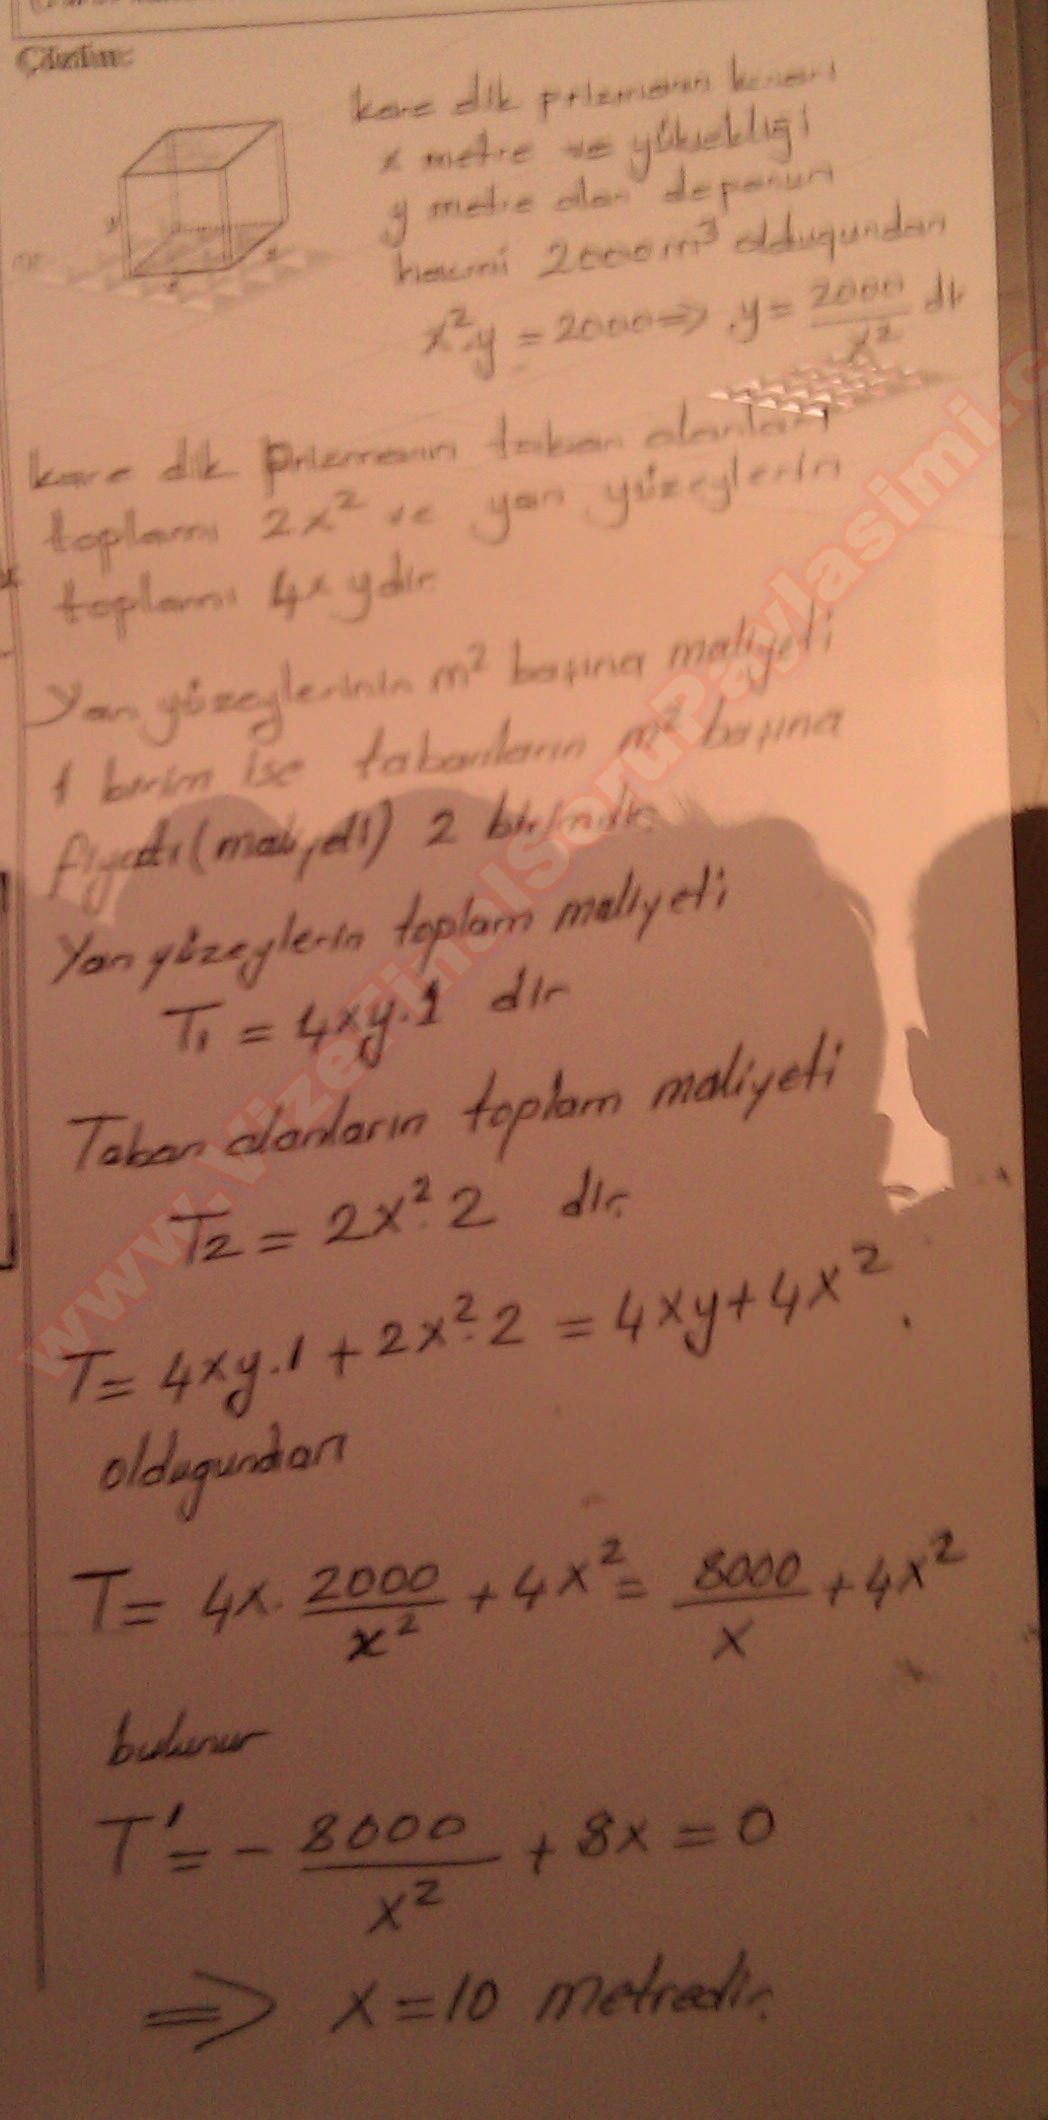 Çözüm:
kare dik prizmanın kenarı
x metre ve yüksekliği
y metre olan deponun
hacmi 2000m³ olduğundan
x².y = 2000 => y = 2000/x² dir
kare dik prizmanın taban alanları
toplamı 2x² ve yan yüzeylerin
toplamı 4xydir.
Yan yüzeylerinin m² başına maliyeti
1 birim ise tabanların m² başına
fiyatı (maliyeti) 2 birimdir.
Yan yüzeylerin toplam maliyeti
T₁ = 4xy.1 dir
Taban alanların toplam maliyeti
T₂ = 2x².2 dir.
T = 4xy.1 + 2x².2 = 4xy + 4x²
olduğundan
T = 4x. 2000/x² + 4x² = 8000/x + 4x²
bulunur
T' = - 8000/x² + 8x = 0
=> x = 10 metredir.
www.VizeFinalSoruPaylasimi.c